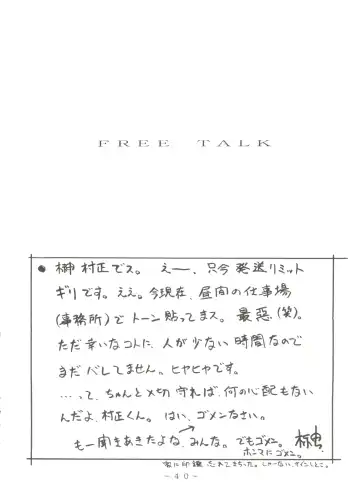 FREE TALK
● 榊 村正でス。 えー、只今 発送リミット
ギリです。ええ。今現在、昼間の仕事場
(事務所)で トーン貼ってまス。最悪(笑)。
ただ幸いなコトに、人が少ない時間なので
まだバレてません。ヒヤヒヤです。
…って、ちゃんと〆切守れば、何の心配もない
んだよ、村正くん。はい、ゴメンなさい。
も一聞きあきたよね、みんな。でもゴメン。
ホンマにゴメン。
忘れてまった。しゃーない、サインしとこ。
-40-